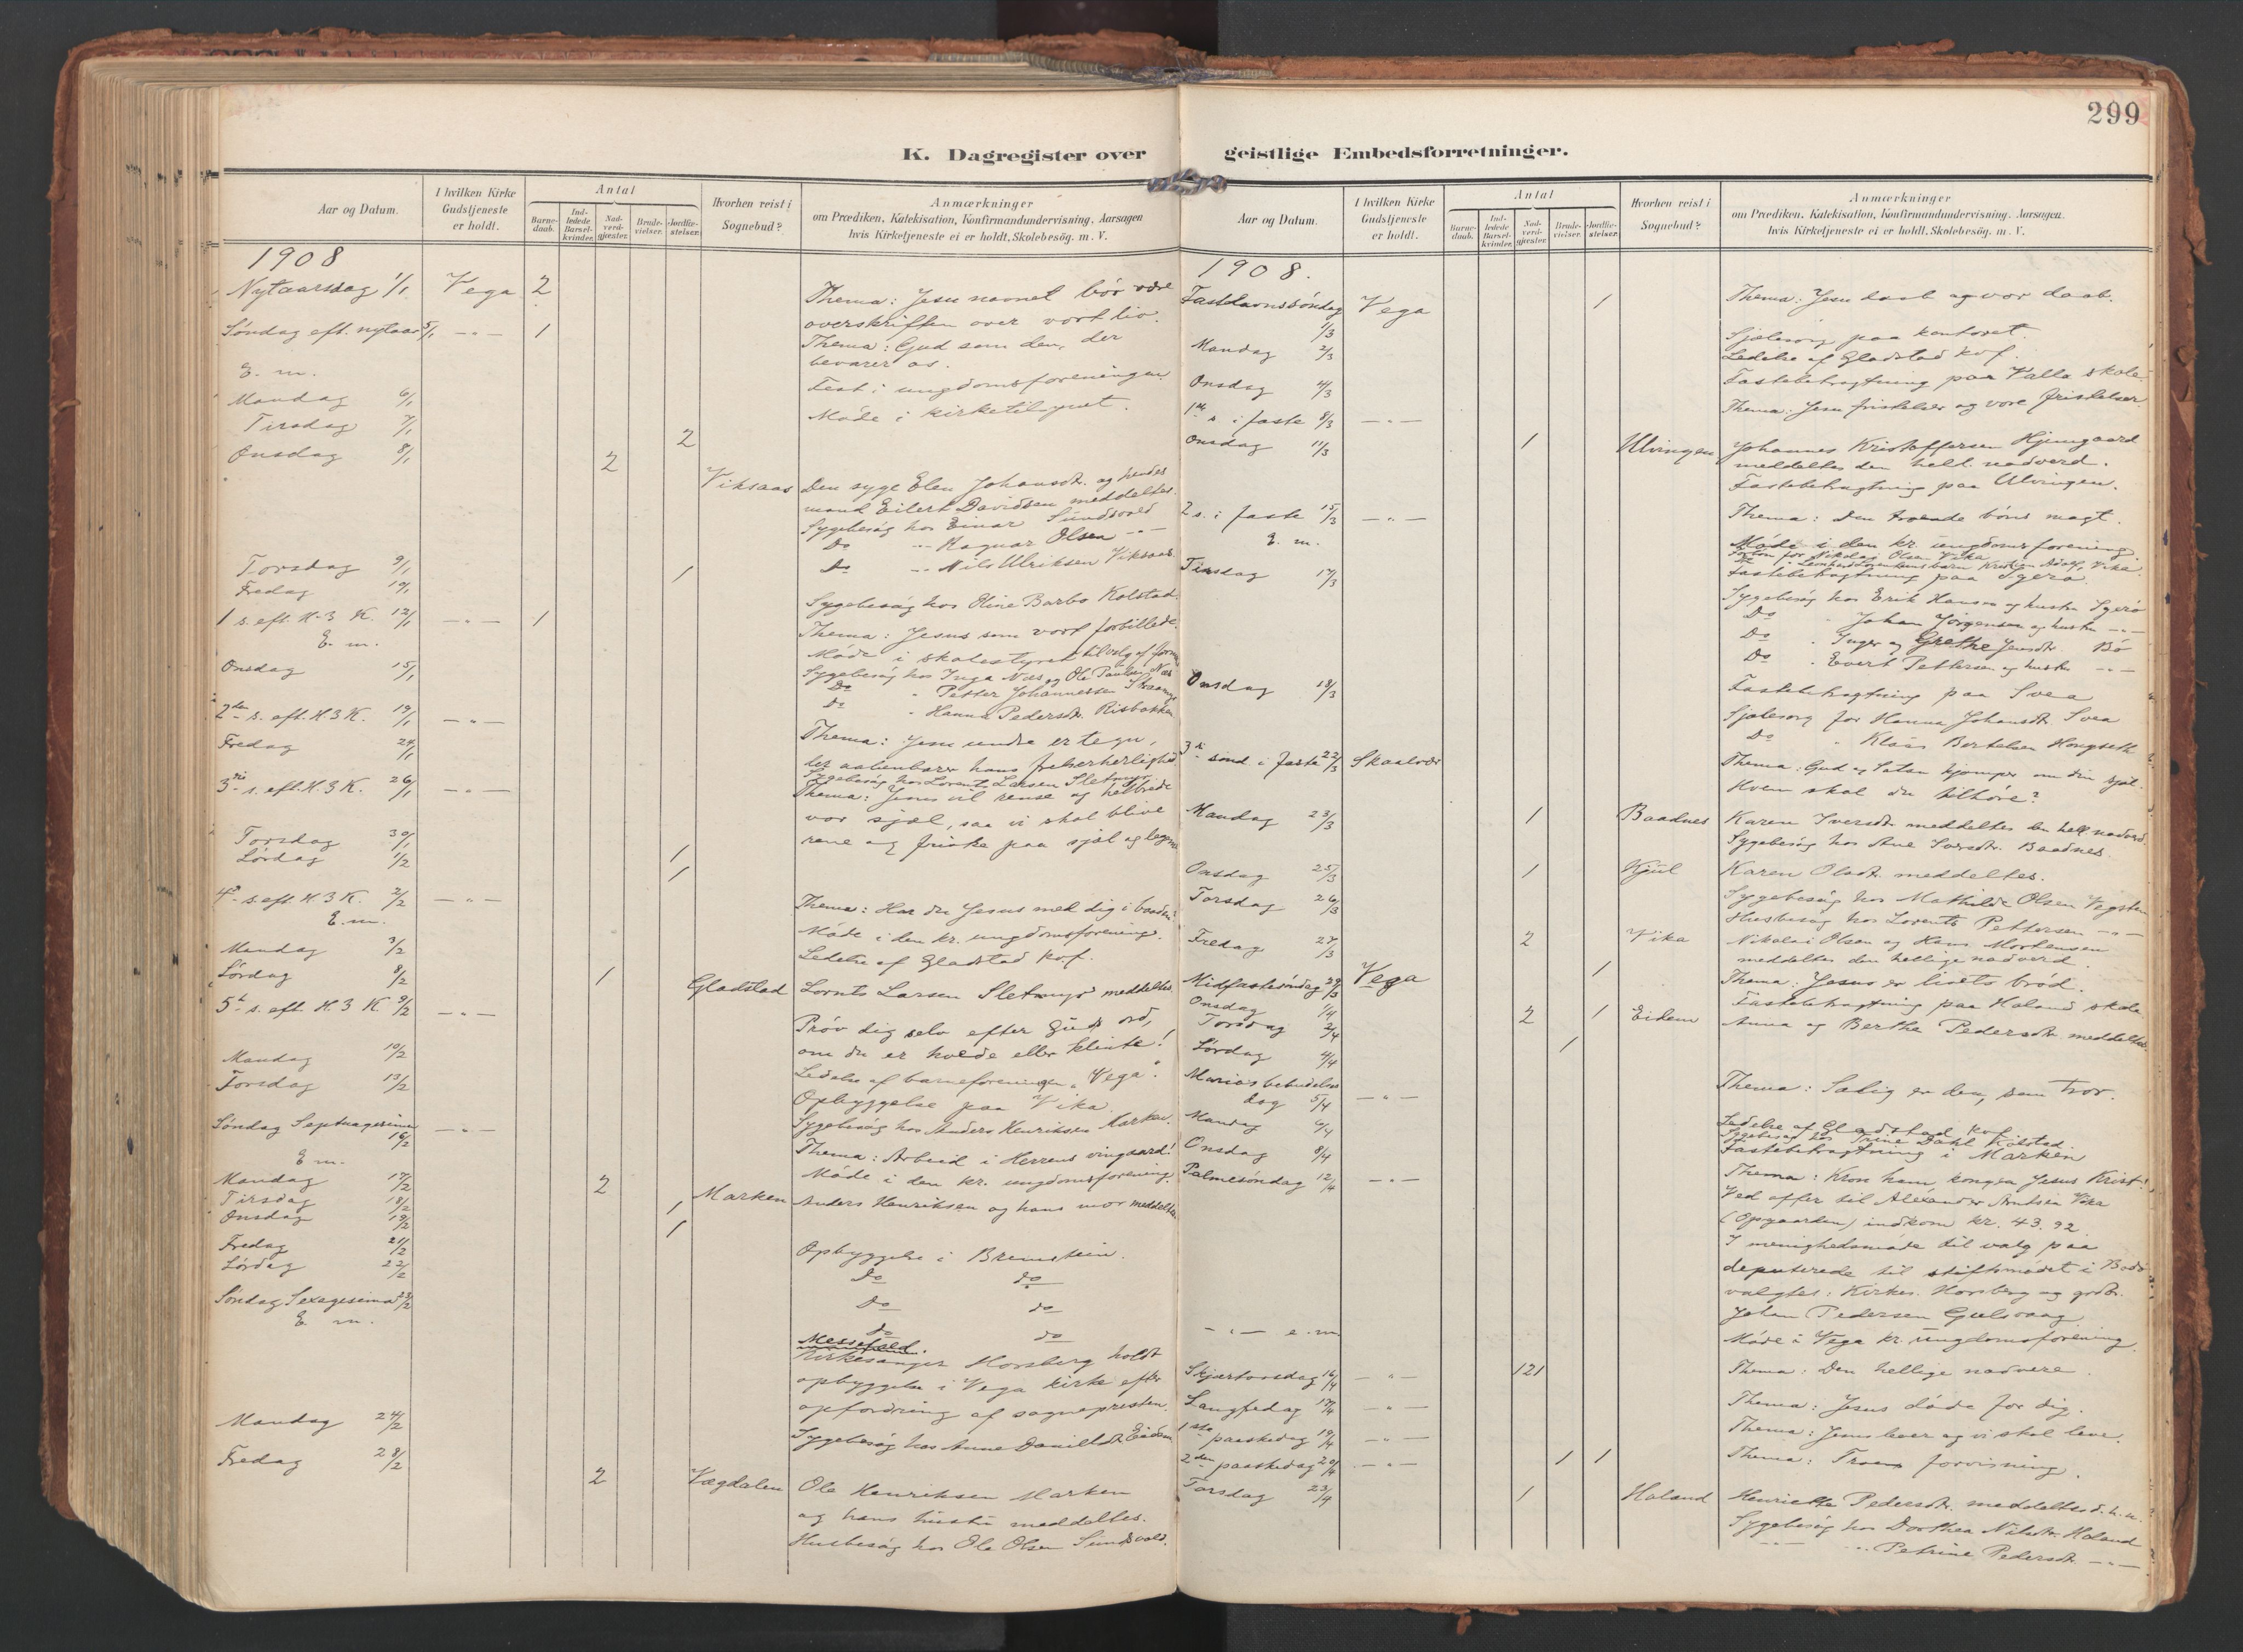 299
K. Dagregister over geistlige Embedsforretninger.
Aar og Datum.
I hvilken Kirke Gudstjeneste er holdt.
Antal
Barne-daab.
Ind-ledede Barsel-kvinder.
Nad-verd-gjester.
Brude-vielser.
Jordfæ-stelser.
Hvorhen reist i Sognebud?
Anmærkninger
om Prædiken, Katekisation, Konfirmandundervisning, Aarsagen
hvis Kirketjeneste ei er holdt, Skolebesøg. m. V.
1908
Nytaarsdag 1/1 Vega 2 Thema: Jesu navnet bør være
overskriften over vort liv.
Søndag eft. nytaar 5/1 -"- 1 Thema: Gud som den, der
bevarer os.
E. m. Fest i ungdomsforeningen
Mandag 6/1 Møde i kirketilsynet.
Tirsdag 7/1 2
Onsdag 8/1 2 Viksaas Den syge Elen Johansdr. og hendes
mand Eilert Davidsen meddeltes.
Sygebesøg hos Einar Sundsvold
Do -"- Ragnar Olsen -"-
Do -"- Nils Ulriksen Viksaas
Torsdag 9/1 1
Fredag 10/1 Sygebesøg hos Oline Barbo Kolstad.
1 s. eft. H. 3 K. 12/1 -"- 1 Thema: Jesus som vort forbillede.
E. m. Møde i skolestyret til valg af form
Onsdag 15/1 Sygebesøg hos Inga Næs og Ole Paulsen Næs
Do " Petter Johannessen
Do " Hanna Pedersdr. Risbakken
2den s. eft. H. 3 K. 19/1 -"- Thema: Jesu undre er tegn,
der aabenbarer hans frelserherlighed
Fredag 24/1 Sygebesøg hos Lorents Larsen Sletmyr
3die s. eft. H. 3 K. 26/1 -"- Thema: Jesus vil rense og helbrede
vor sjæl, saa vi skal blive
rene og friske paa sjæl og legeme
Torsdag 30/1 1
Lørdag 1/2 1
4de s. eft. H. 3 K. 2/2 -"- Thema: Har du Jesus med dig i baaden?
E. m. Møde i den kr. ungdomsforening.
Mandag 3/2 Ledelse af Gladstad kvf.
Lørdag 8/2 1 Gladstad Lornts Larsen Sletmyr meddeltes.
5te s. eft. H. 3 K 9/2 -"- Prøv dig selv efter Guds ord,
om du er hvede eller klinte!
Mandag 10/2 Ledelse af barneforeningen "Vega".
Torsdag 13/2 Opbyggelse paa Vika.
Sygebesøg hos Anders Henriksen Marken.
Søndag Septuagesima 16/2 -"- Thema: Arbeid i Herrens vingaard!
E m. Møde i den kr. ungdomsforening.
Mandag 17/2 2 Marken Anders Henriksen og hans mor meddeltes
Tirsdag 18/2 1
Onsdag 19/2 1 Opbyggelse i Bremstein.
Fredag 21/2 Do do
Lørdag 22/2 Do do
Søndag Sexagesima 23/2 do do
E. m. Messefald.
Kirkesanger Horsberg holdt
opbyggelse i Vega kirke efter
opfordring af sognepresten.
Mandag 24/2 Sygebesøg hos Anne Danielsdr. Eidem
Fredag 28/2 2 Vægdalen Ole Henriksen Marken
og hans hustru meddeltes.
Husbesøg hos Ole Olsen Sundsvold.
Aar og Datum.
I hvilken Kirke Gudstjeneste er holdt.
Antal
Barne-daab.
Ind-ledede Barsel-kvinder.
Nad-verd-gjester.
Brude-vielser.
Jordfæ-stelser.
Hvorhen reist i Sognebud?
Anmærkninger
om Prædiken, Katekisation, Konfirmandundervisning, Aarsagen
hvis Kirketjeneste ei er holdt, Skolebesøg. m. V.
1908.
Fastelavnssøndag 1/3 Vega 1 Thema: Jesu daab og vor daab.
Mandag 2/3 Sjælesorg paa kontoret.
Ledelse af Gladstad kvf.
Onsdag 4/3 Fastebetragtning paa Valla skole.
1ste s. i faste 8/3 -"- Thema: Jesu fristelser og vore fristelser.
Onsdag 11/3 1 Ulvingen Johannes Kristoffersen Hjemgaard
meddeltes den hell. nadverd.
Fastebetragtning paa Ulvingen.
2 s. i faste 15/3 -"- Thema: Den troende bøns magt.
E. m. Møde i den kr. ungdomsforening.
Forbøn for Nikolai Olsen Vika
Tirsdag 17/3 Fastebetragtning paa Igerø.
Sygebesøg hos Erik Hansen og hustru Igerø
Do " Johan Jørgensen og hustru -"-
Do " Inger og Grethe Jensdr. Bø
Do " Evert Pettersen og hustru -"-
Onsdag 18/3 Fastebetragtning paa Svea
Sjælesorg for Hanna Johansdr. Svea
Do " Klaus Bertelsen Hongseth
3die sønd i faste 22/3 Skaalvær Thema: Gud og Satan kjæmper om din sjæl.
Hvem skal du tilhøre?
Mandag 23/3 1 Baadnes Karen Iversdr. meddeltes den hell. nadverd.
Sygebesøg hos Ane Iversdr. Baadnes.
Onsdag 25/3 1 Kjul Karen Olsdr. meddeltes.
Torsdag 26/3 Sygebesøg hos Mathilde Olsen Vegsten
Husbesøg hos Lorents Pettersen -"-
Fredag 27/3 2 Vika Nikolai Olsen og Hans Mortensen
meddeltes den hellige nadverd.
Midfastesøndag 29/3 Vega 1 Thema: Jesus er livets brød.
Onsdag 1/4 Fastebetragtning paa Holand skole
Torsdag 2/4 2 1 Eidem Anna og Berthe Pedersdr. meddeltes.
Lørdag 4/4 1
Marias bebudelses dag 5/4 -"- Thema: Salig er den, som tror.
Mandag 6/4 Ledelse af Gladstad kvf.
Sygebesøg hos Trine Dahl Kolstad.
Onsdag 8/4 Fastebetragtning i Marken
Palmesøndag 12/4 -"- Thema: Kron ham, kongen Jesus Krist!
Ved offer til Alexander Arntsen Vika
(Opgaarden) indkom kr. 43.92.
I menighedsmøde til valg paa
deputerede til stiftsmødet i Bodø
valgtes: Kirkes. Horsberg og grdbr.
Johan Pedersen Gulsvaag
-"- e. m Møde i Vega kr. ungdomsforening.
Skjærtorsdag 16/4 -"- 121 Thema: Den hellige nadvere.
Langfredag 17/4 -"- Thema: Jesus døde for dig.
1ste paaskedag 19/4 -"- Thema: Jesus lever og vi skal leve.
2den paaskedag 20/4 -"- 1 1 Thema: Troens forvisning.
Torsdag 23/4 1 Holand Henriette Pedersdr. meddeltes d. h. n.
Sygebesøg hos Dorthea Nilsdr. Holand
-"- -"- Petrine Pedersdr. -"-